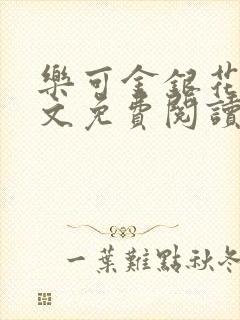 樂可金銀花
文免費閱讀
一葉難點秋冬